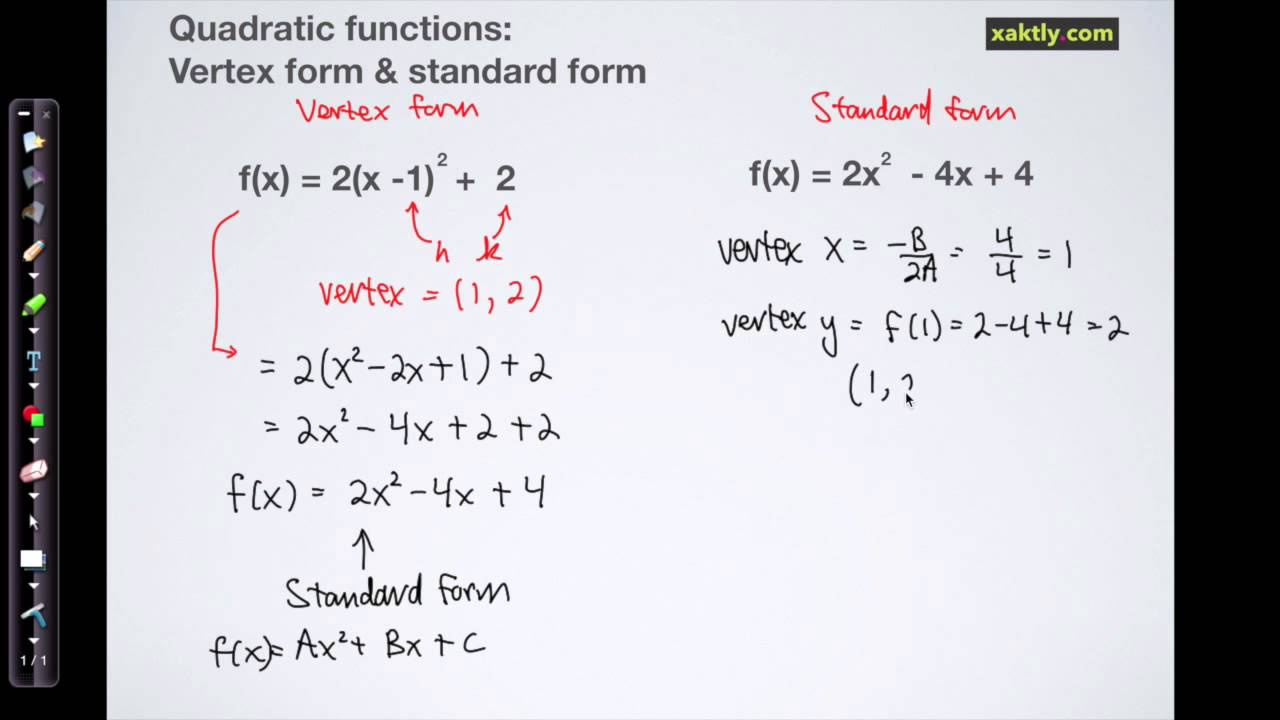 Quadratic functions:
Vertex form & standard form
xaktly.com
Vertex form
f(x) = 2(x -1)² + 2
h k
vertex = (1, 2)
= 2(x² - 2x + 1) + 2
= 2x² - 4x + 2 + 2
f(x) = 2x² - 4x + 4
Standard form
f(x) = Ax² + Bx + C
Standard form
f(x) = 2x² - 4x + 4
vertex x = -B/2A = 4/4 = 1
vertex y = f(1) = 2 - 4 + 4 = 2
(1, 2
T
1 / 1